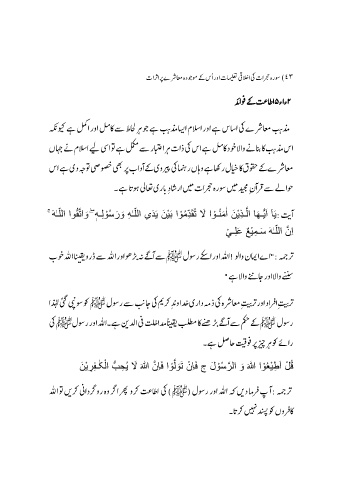 ۴۳) سورہ حجرات کی اخلاقی تعلیمات اور اُس کے موجودہ معاشرے پر اثرات
۲ء۵ءاطاعت کے فوائد
مذہب معاشرے کی اساس ہے اور اسلام ایسا مذہب ہے جو ہر لحاظ سے کامل اور اکمل ہے کیونکہ
اس مذہب کا بنانے والا خود کامل ہے اس کی ذات ہر اعتبار سے مکمل ہے تو اسی لیے اسلام نے جہاں
معاشرے کے حقوق کا خیال رکھا ہے وہاں رہنما کی پیروی کے آداب پر بھی خصوصی توجہ دی ہے اس
حوالے سے قرآن مجید میں سورہ حجرات میں ارشاد باری تعالی ہوتا ہے۔
آیت : يٰٓا اَيُّـهَا الَّـذِيْنَ اٰمَنُـوْا لَا تُقَدِّمُوْا بَيْنَ يَدَىِ اللّـٰهِ وَرَسُوْلِـهٖ ۖ وَاتَّقُوا اللّـٰهَ ۚ
اِنَّ اللّـٰهَ سَـمِيْعٌ عَلِـيْمٌ
ترجمہ : "اے ایمان والو! اللہ اور اسکے رسول ﷺ سے آگے نہ بڑھو اور اللہ سے ڈرو یقینا اللہ خوب
سننے والا اور جاننے والا ہے"
تربیت افراد اور تربیت معاشرہ کی ذمہ داری خداوند کریم کی جانب سے رسول ﷺ کو سونپی گئی لہذا
رسول ﷺ کے حکم سے آگے بڑھنے کا مطلب یقیناً مداخلت فی الدین ہے۔ اللہ اور رسول ﷺ کی
رائے کو ہر چیز پر فوقیت حاصل ہے۔
قُلْ اَطِيْعُوا اللهَ وَ الرَّسُوْلَ ج فَاِنْ تَوَلَّوْا فَاِنَّ اللهَ لَا يُحِبُّ الْكٰفِرِيْنَ
ترجمہ : آپ فرما دیں کہ اللہ اور رسول (ﷺ) کی اطاعت کرو پھر اگر وہ رو گردانی کریں تو اللہ
کافروں کو پسند نہیں کرتا۔